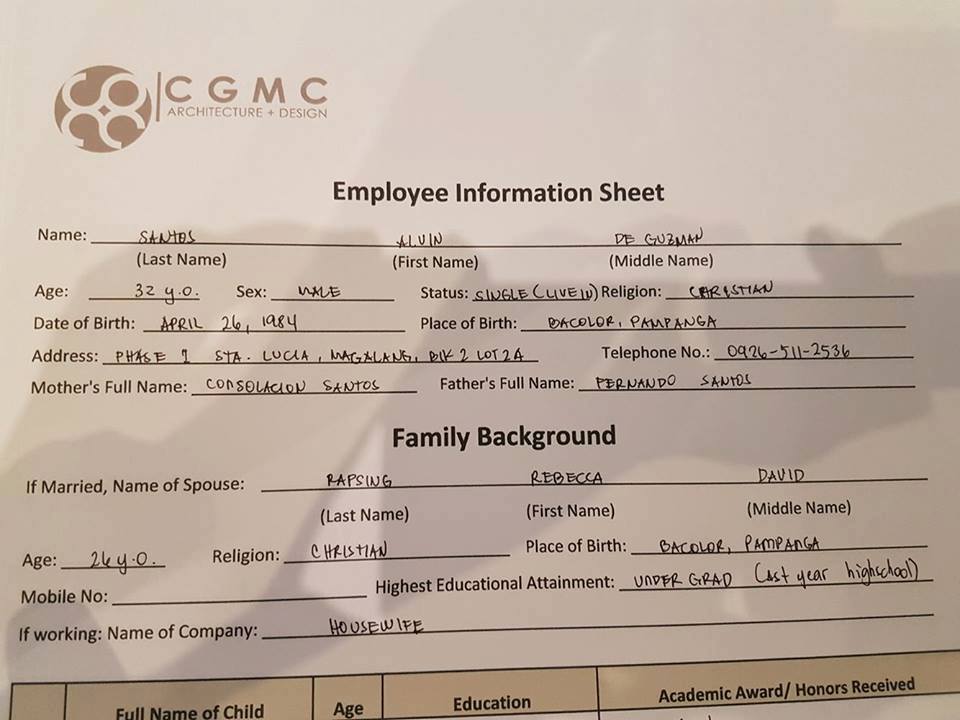 CGMC
ARCHITECTURE + DESIGN
Employee Information Sheet
Name: SANTOS ALVIN DE GUZMAN
(Last Name) (First Name) (Middle Name)
Age: 32 y.o. Sex: MALE Status: SINGLE (LIVE IN) Religion: CHRISTIAN
Date of Birth: APRIL 26, 1984 Place of Birth: BACOLOR, PAMPANGA
Address: PHASE 1 STA. LUCIA, MAGALANG, BLK 2 LOT 24 Telephone No.: 0926-511-2536
Mother's Full Name: CONSOLACION SANTOS Father's Full Name: FERNANDO SANTOS
Family Background
If Married, Name of Spouse: RAPSING REBECCA DAVID
(Last Name) (First Name) (Middle Name)
Age: 26 y.o. Religion: CHRISTIAN Place of Birth: BACOLOR, PAMPANGA
Mobile No: Highest Educational Attainment: UNDER GRAD (1st year highschool)
If working: Name of Company: HOUSEWIFE
Full Name of Child Age Education Academic Award/ Honors Received